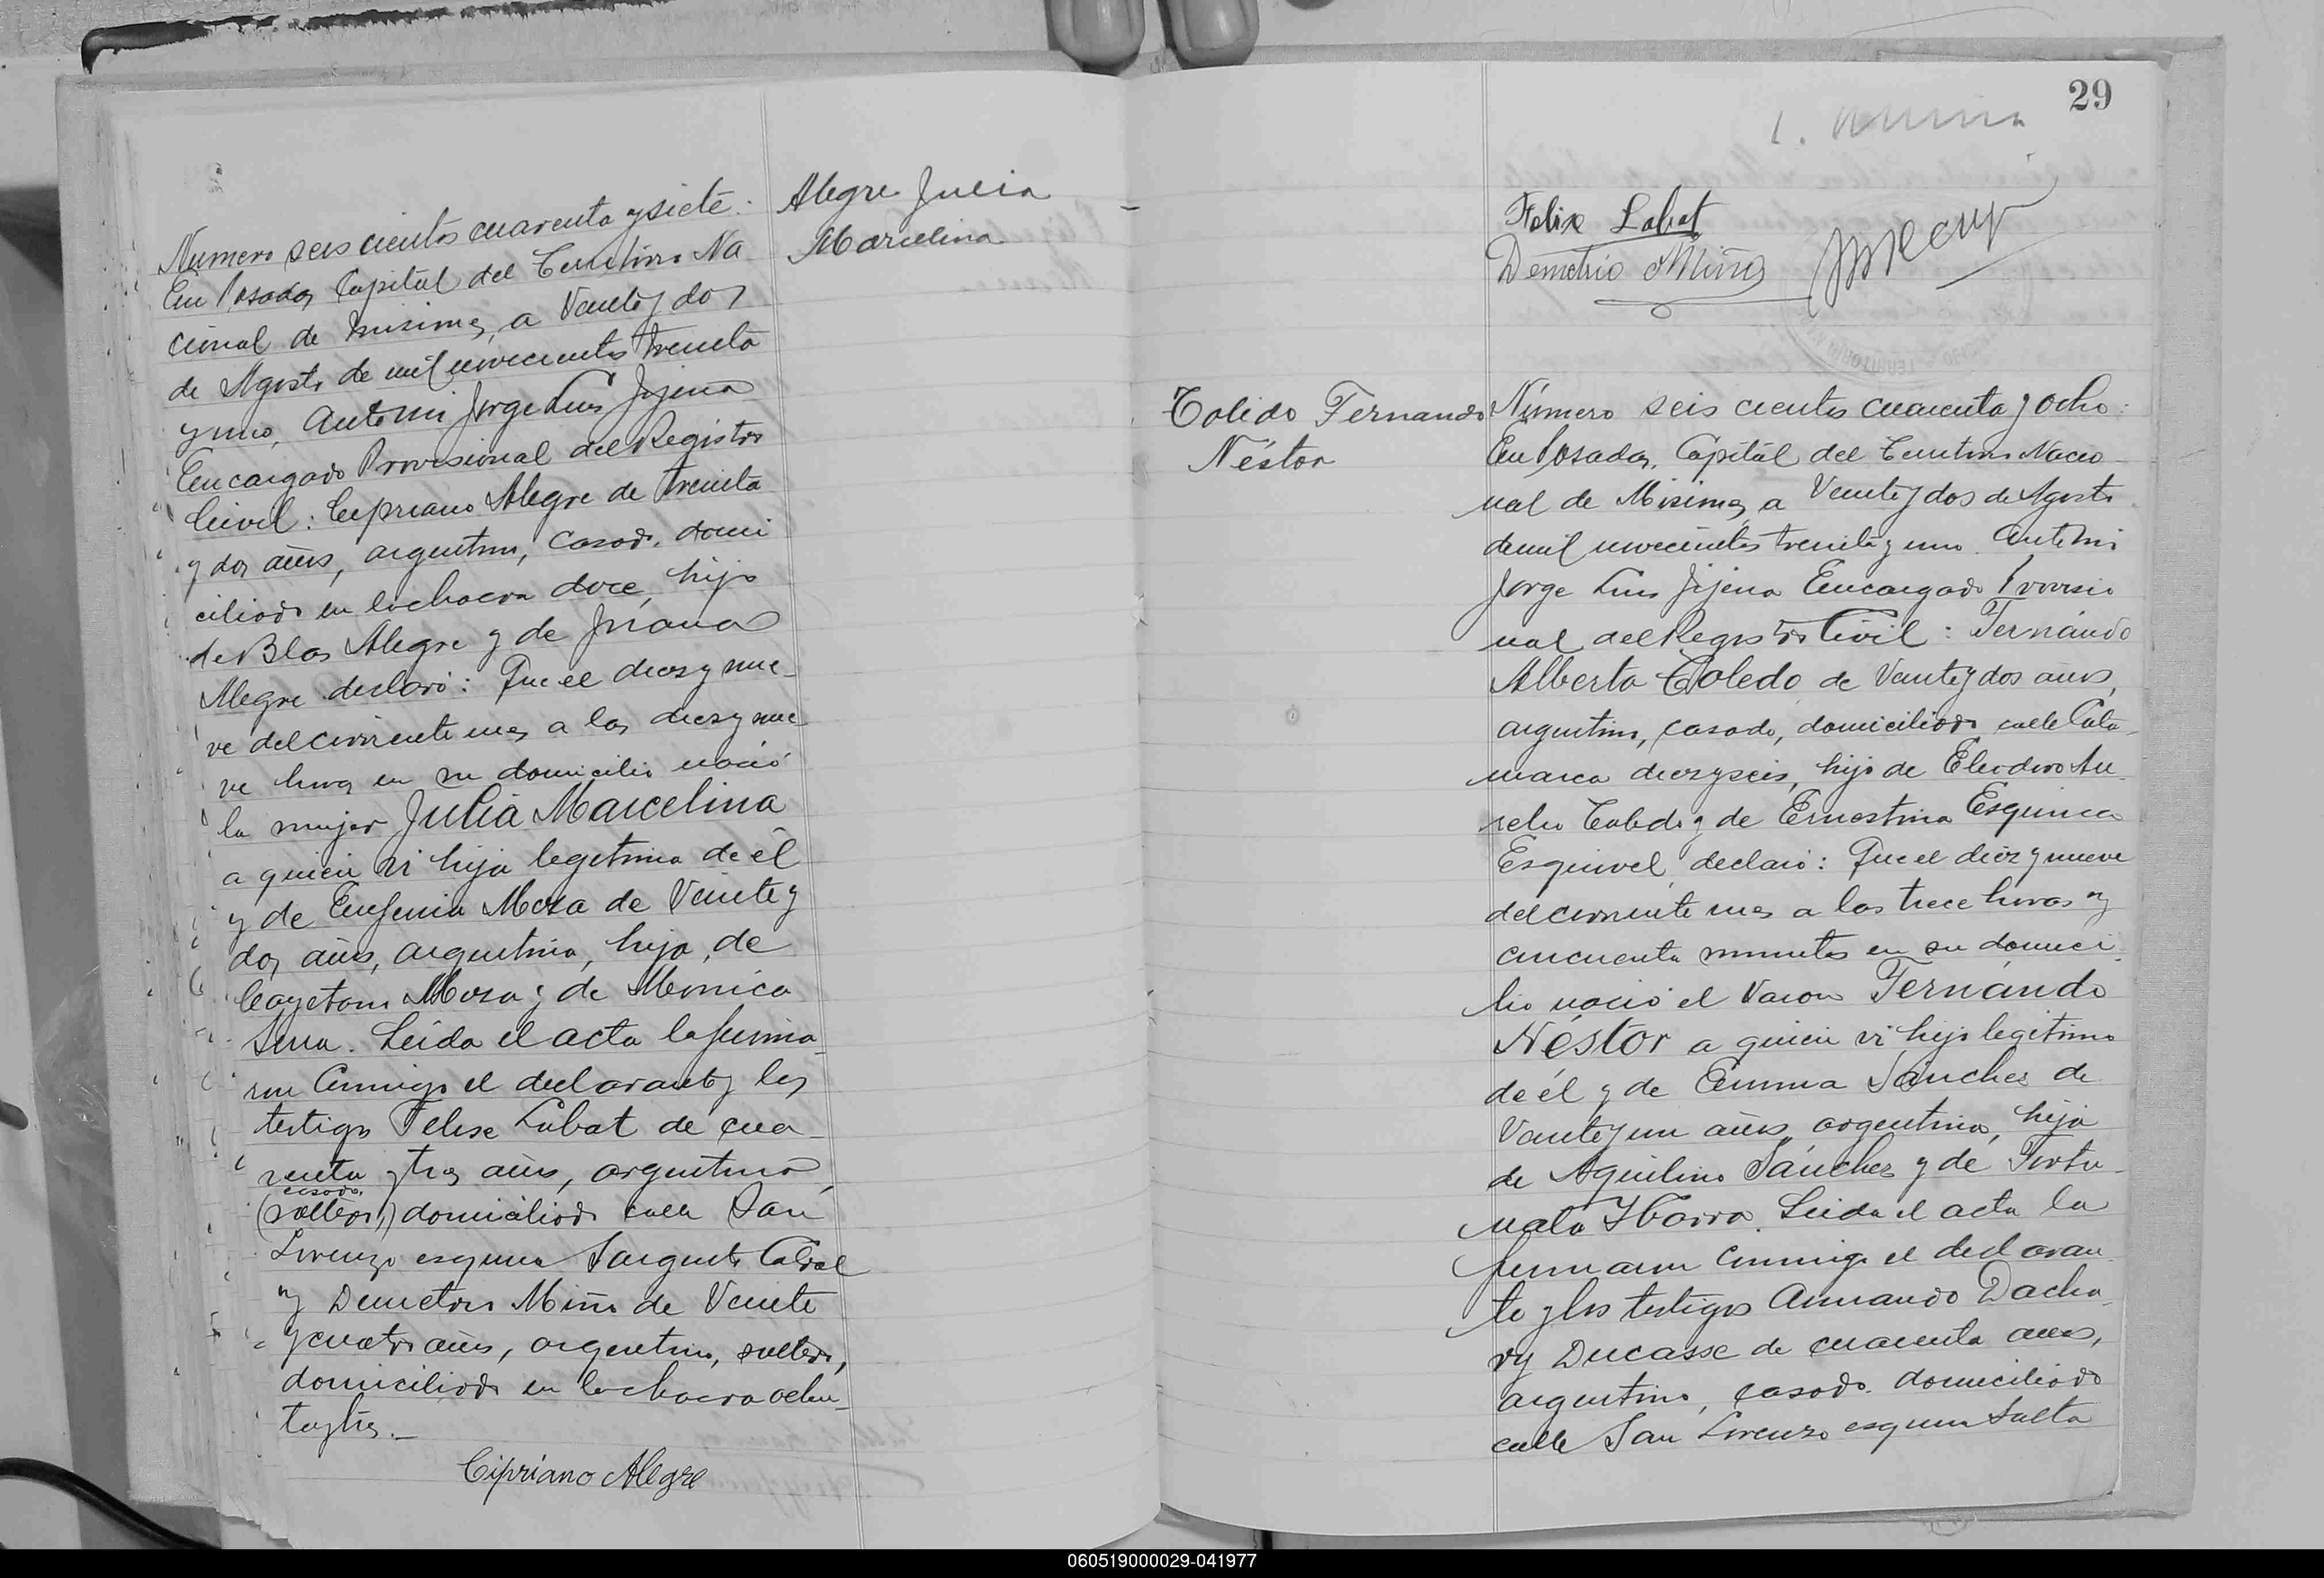 Numero seis cientos cuarenta y siete:
En Posadas Capital del Territorio Na
cional de Misiones, a Veinte y dos
de Agosto de mil novecientos treinta
y uno, Ante mi Jorge Luis Jijena
Encargado Provisional del Registro
Civil: Cipriano Alegre de treinta
y dos años, argentino, casado, domi
ciliado en la chacra doce, hijo
de Blas Alegre y de Juana
Alegre declaró: Que el diez y nue-
ve del corriente mes a las diez y nue
ve horas en su domicilio nació
la mujer Julia Marcelina
a quien vi hija legitima de él
y de Eufenia Meza de Veinte y
dos años, argentina, hija, de
Cayetano Meza y de Monica
Sena. Leida el acta la firma-
ron Conmigo el declarante y los
testigos Felise Labat de cua-
renta y tres años, argentino,
casado,
(soltero,) domiciliado calle San
Lorenzo esquina Sargento Cabral
y Demetrio Miño de Veinte
y cuatro años, argentino, soltero,
domiciliado en la chacra ochen-
ta y tres.-
Cipriano Alegre
Alegre Julia
Marcelina
29
Felix Labat
Demetrio Miño
Toledo Fernando
Néstor
Número seis cientos cuarenta y ocho:
En Posadas, Capital del Territorio Nacio-
nal de Misiones, a Veinte y dos de Agosto
de mil novecientos treinta y uno. Ante mi
Jorge Luis Jijena Encargado Provisio
nal del Registro Civil: Fernándo
Alberto Toledo de Veinte y dos años,
argentino, casado, domiciliado calle Cata-
marca diez y seis, hijo de Eleodoro Au-
relio Toledo y de Ernestina Esquinca
Esquivel declaró: Que el diez y nueve
del corriente mes a las trece horas y
cincuenta minutos en su domici-
lio nació el Varon Fernándo
Néstor a quien vi hijo legitimo
de él y de Emma Sanches de
Veinte y un años, argentina, hija
de Aquilino Sánchez y de Fortu-
nata Ybarra. Leida el acta la
firmaron Conmigo el declaran-
te y los testigos Armando Dacha-
ry Ducasse de cuarenta años,
argentino, casado, domiciliado
calle San Lorenzo esquina Salta
060519000029-041977